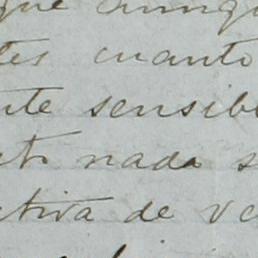 que aunqu
tes cuanto
nte sensibl
nada s
ctiva de va